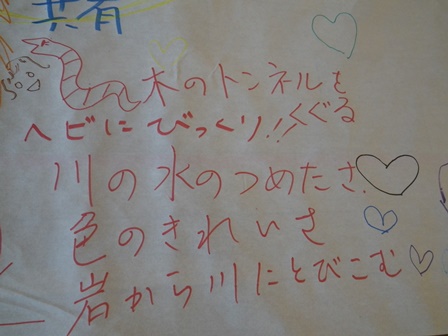 共有
木のトンネルを
くぐる
ヘビにびっくり!!
川の水のつめたさ
色のきれいさ
岩から川にとびこむ